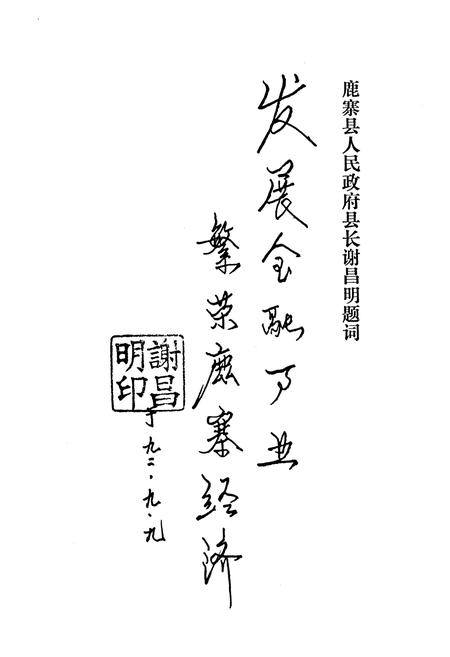 鹿寨县人民政府县长谢昌明题词
发展金融事业
繁荣鹿寨经济
謝昌明印
于九二·九·九